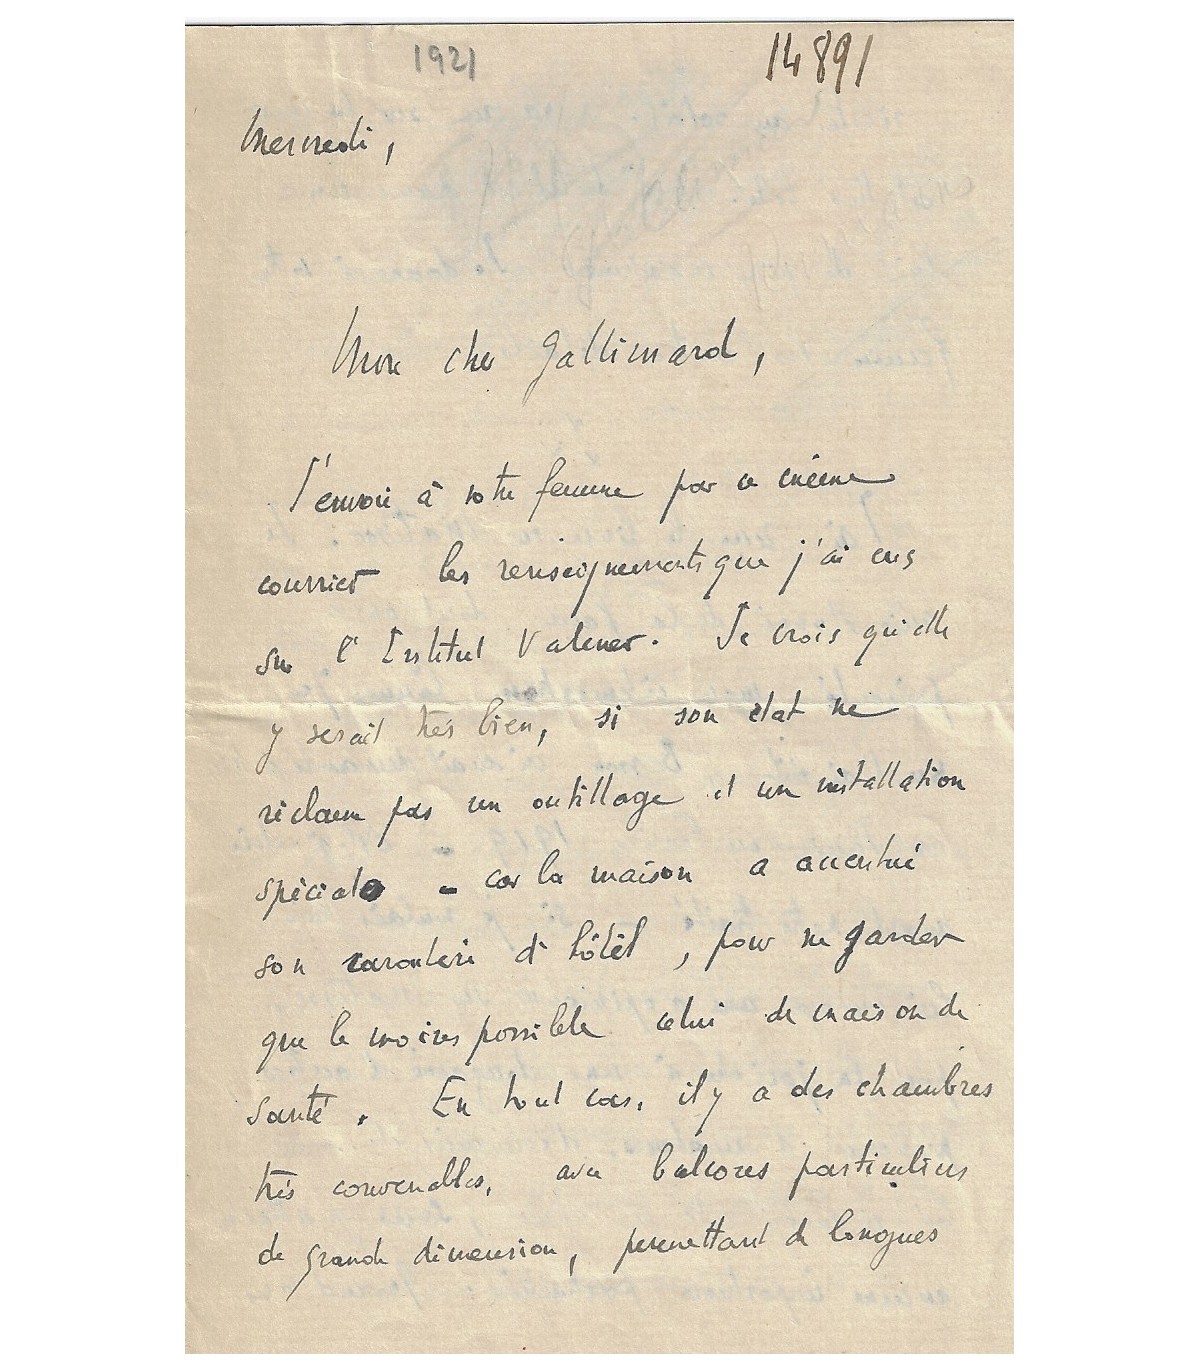 1921
14891
Mercredi,
Mon cher Gallimard,
J'envoie à votre femme par ce même
courrier les renseignements que j'ai eus
sur l'Institut Valmer. Je crois qu'elle
y serait très bien, si son état ne
réclame pas un outillage et une installation
spéciale - car la maison a accentué
son caractère d'hôtel, pour ne garder
que le moins possible celui de maison de
santé. En tout cas, il y a des chambres
très convenables, avec balcons particuliers
de grande dimension, permettant de longues